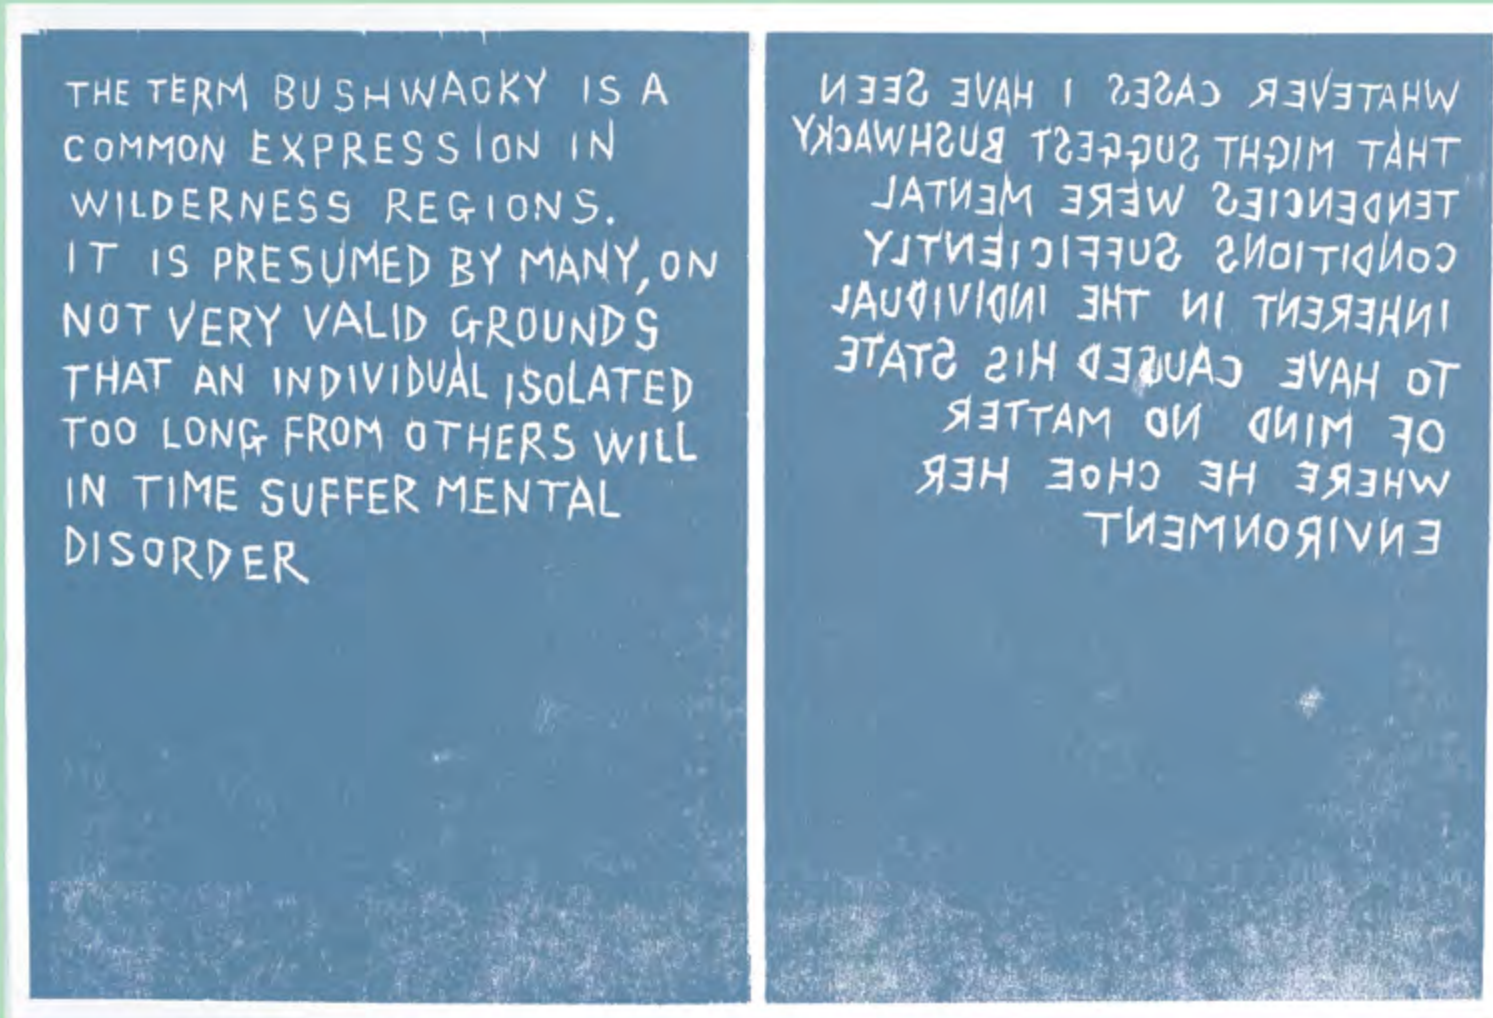 THE TERM BUSHWACKY IS A
COMMON EXPRESSION IN
WILDERNESS REGIONS.
IT IS PRESUMED BY MANY, ON
NOT VERY VALID GROUNDS
THAT AN INDIVIDUAL ISOLATED
TOO LONG FROM OTHERS WILL
IN TIME SUFFER MENTAL
DISORDER
WHATEVER CASES I HAVE SEEN
THAT MIGHT SUGGEST BUSHWACKY
TENDENCIES WERE MENTAL
CONDITIONS SUFFICIENTLY
INHERENT IN THE INDIVIDUAL
TO HAVE CAUSED HIS STATE
OF MIND NO MATTER
WHERE HE CHOE HER
ENVIRONMENT